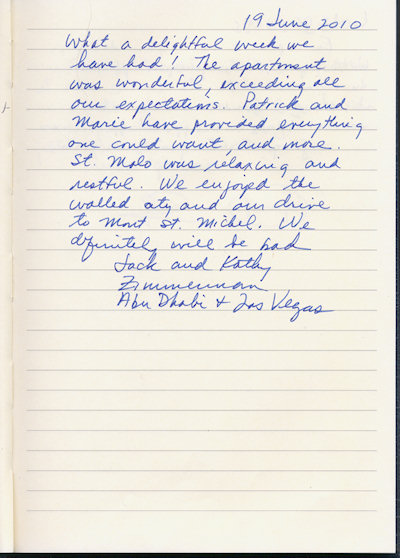 19 June 2010
What a delightful week we
have had! The apartment
was wonderful, exceeding all
our expectations. Patrick and
Marie have provided everything
one could want, and more.
St. Malo was relaxing and
restful. We enjoyed the
walled city and our drive
to Mont St. Michel. We
definitely will be bad
Jack and Kathy
Zimmerman
Abu Dhabi & Las Vegas